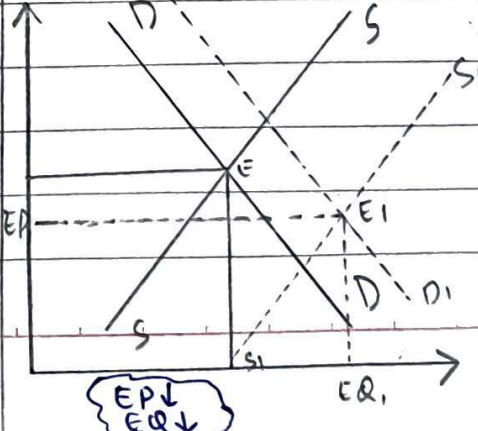 D
S
S1
E
EP
E1
D
D1
S
S1
EQ1
EP↓
EQ↓